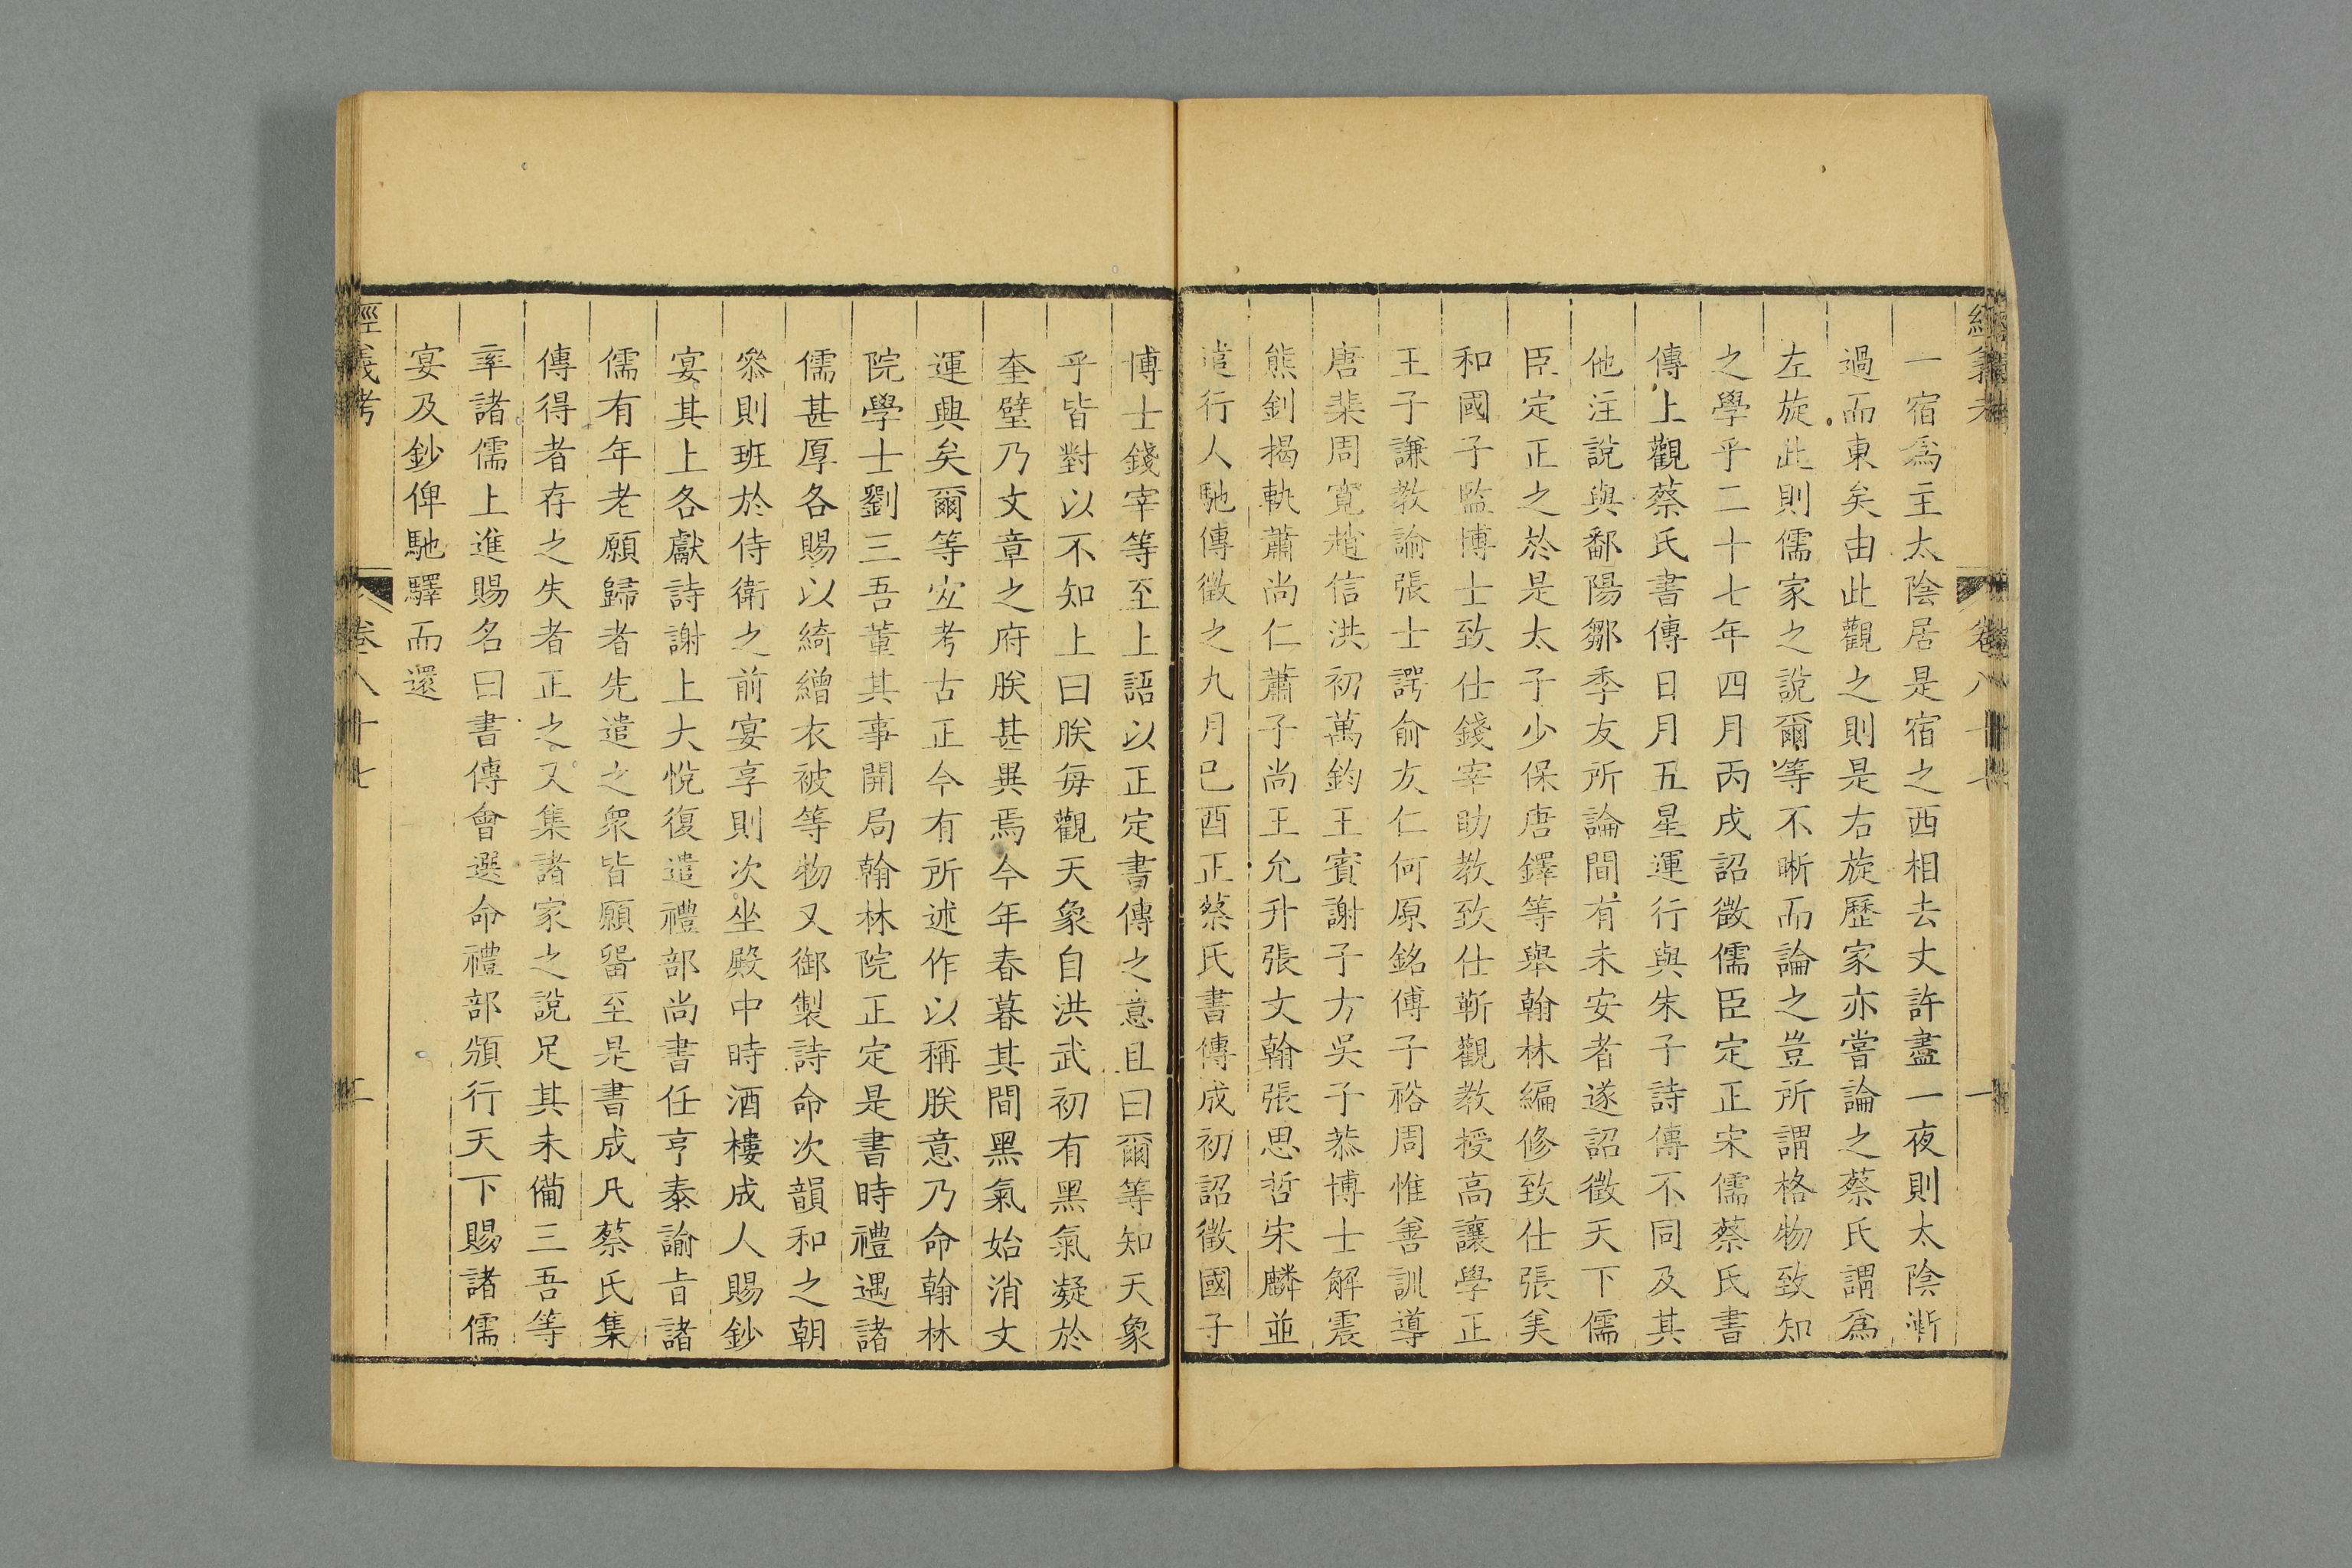 經義考
卷八十七
一
一宿爲主太陰居是宿之西相去丈許盡一夜則太陰漸
過而東矣由此觀之則是右旋歷家亦嘗論之蔡氏謂爲
左旋此則儒家之說爾等不晰而論之豈所謂格物致知
之學乎二十七年四月丙戌詔徵儒臣定正宋儒蔡氏書
傳上觀蔡氏書傳日月五星運行與朱子詩傳不同及其
他注說與鄱陽鄒季友所論間有未安者遂詔徵天下儒
臣定正之於是太子少保唐鐸等舉翰林編修致仕張美
和國子監博士致仕錢宰助教致仕靳觀教授高讓學正
王子謙教諭張士諤俞友仁何原銘傅子裕周惟善訓導
唐棐周寬趙信洪初萬鈞王賓謝子方吳子恭博士解震
熊釗揭軌蕭尚仁蕭子尚王允升張文翰張思哲宋麟並
遣行人馳傳徵之九月己酉正蔡氏書傳成初詔徵國子
博士錢宰等至上語以正定書傳之意且曰爾等知天象
乎皆對以不知上曰朕每觀天象自洪武初有黑氣凝於
奎璧乃文章之府朕甚異焉今年春暮其間黑氣始消文
運興矣爾等宜考古正今有所述作以稱朕意乃命翰林
院學士劉三吾董其事開局翰林院正定是書時禮遇諸
儒甚厚各賜以綺繒衣被等物又御製詩命次韻和之朝
叅則班於侍衛之前宴享則次坐殿中時酒樓成人賜鈔
宴其上各獻詩謝上大悅復遣禮部尚書任亨泰諭旨諸
儒有年老願歸者先遣之衆皆願留至是書成凡蔡氏集
傳得者存之失者正之又集諸家之說足其未備三吾等
率諸儒上進賜名曰書傳會選命禮部頒行天下賜諸儒
宴及鈔俾馳驛而還
經義考
卷八十七
二